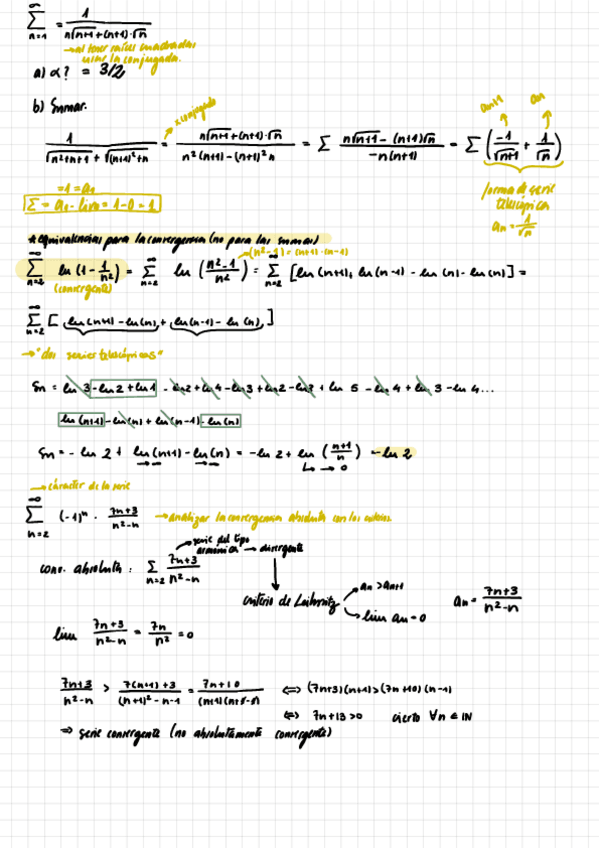 ∞
∑ = 1 / (n√n+1 + (n+1)·√n)
n=1
→ al tener raíces cuadradas
usar la conjugada.
a) α? = 3/2
b) Sumar.
x conjugada
an+1 an
1 / (√n²+n+1 + √(n+1)²+n) = (n√n+1 + (n+1)·√n) / (n²(n+1) - (n+1)²n) = ∑ (n√n+1 - (n+1)√n) / (-n(n+1)) = ∑ (-1/√n+1 + 1/√n)
forma de serie
telescópica
an = 1/√n
=1 = a1
∑ = a1 - lim = 1-0 = 1
* equivalencias para la convergencia (no para las sumas)
(n²-1) = (n+1)·(n-1)
∞ ∑ n=2 ln (1 - 1/n²) = ∞ ∑ n=2 ln (n²-1 / n²) = ∞ ∑ n=2 [ln (n+1) + ln (n-1) - ln (n) - ln(n)] =
(convergente)
∞ ∑ n=2 [ ln(n+1) - ln(n) + ln(n-1) - ln(n) ]
→ "dos series telescópicas"
Sn = ln 3 - ln 2 + ln 1 - ln 2 + ln 4 - ln 3 + ln 2 - ln 3 + ln 5 - ln 4 + ln 3 - ln 4 ...
ln (n+1) - ln(n) + ln(n-1) - ln(n)
Sn = - ln 2 + ln(n+1) - ln(n) = - ln 2 + ln (n+1 / n) = - ln 2
→ 0
→ carácter de la serie
∞ ∑ n=2 (-1)ⁿ · 7n+3 / n²-n → analizar la convergencia absoluta con los criterios.
→ serie del tipo
armónica → divergente
conv. absoluta : ∑ n=2 7n+3 / n²-n
criterio de Leibnitz
an > an+1
lim an = 0
an = 7n+3 / n²-n
lim 7n+3 / n²-n = 7n / n² = 0
7n+3 / n²-n > 7(n+1)+3 / (n+1)²-n-1 = 7n+10 / (n+1)(n+1-1) ⇔ (7n+3)(n+1) > (7n+10)(n-1)
⇔ 7n+13 > 0 cierto ∀n ∈ IN
⇒ serie convergente (no absolutamente convergente)